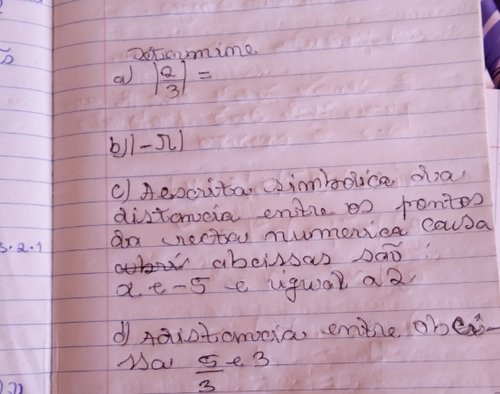 Determine
a) |2/3| =
b) |-π|
c) A escrita simbolica da
distancia entre os pontos
da recta numerica causa
abcissas são :
x e -5 e igual a 2
d) A distancia entre abci-
ssa 5/3 e 3
3.2.1